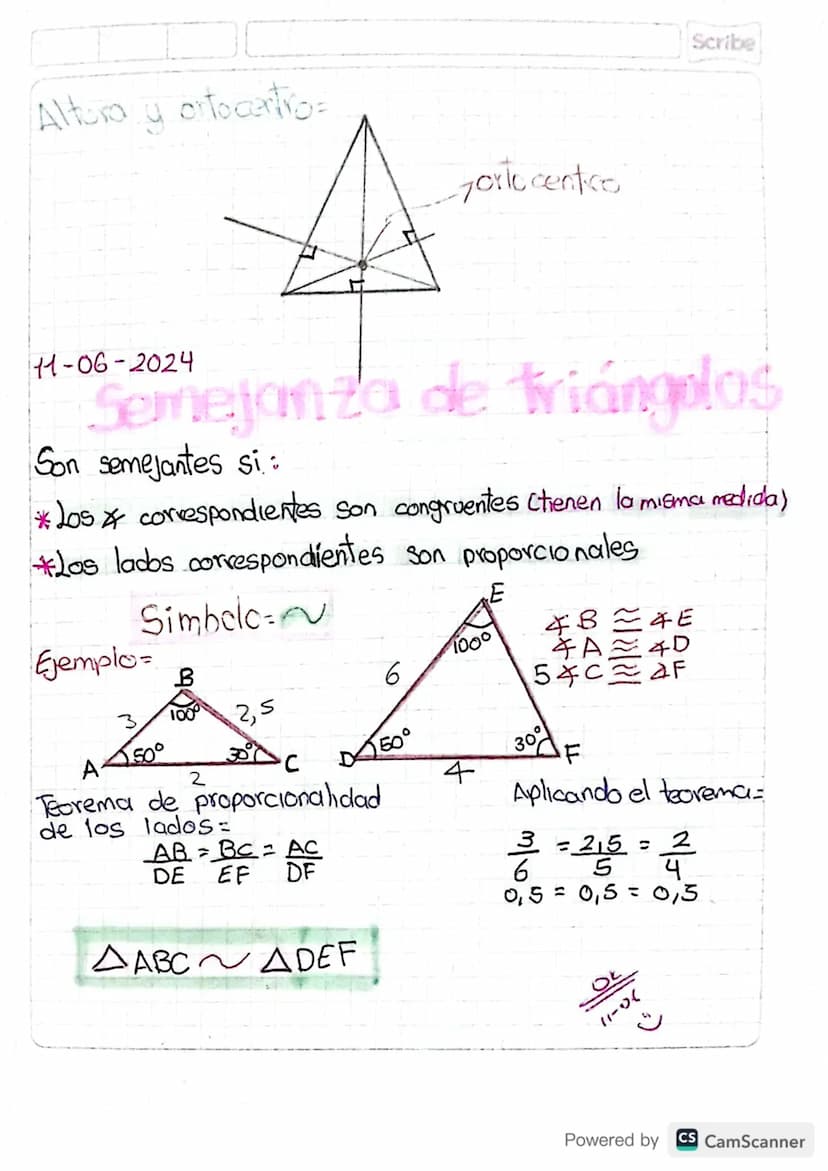 Scribe
Altura y ortocentro=
ortocentro
11-06-2024
Semejanza de triángulos
Son semejantes si:
*Los ∡ correspondientes son congruentes (tienen la misma medida)
*Los lados correspondientes son proporcionales
Simbolo= ~
Ejemplo=
B
100°
3
2,5
A
50°
30°
C
2
E
100°
6
5
D
50°
30°
F
4
∡B ≅ ∡E
∡A ≅ ∡D
∡C ≅ ∡F
Teorema de proporcionalidad
de los lados=
AB/DE = BC/EF = AC/DF
Aplicando el teorema=
3/6 = 2,5/5 = 2/4
0,5 = 0,5 = 0,5
△ABC ~ △DEF
OK
11-06
Powered by CS CamScanner